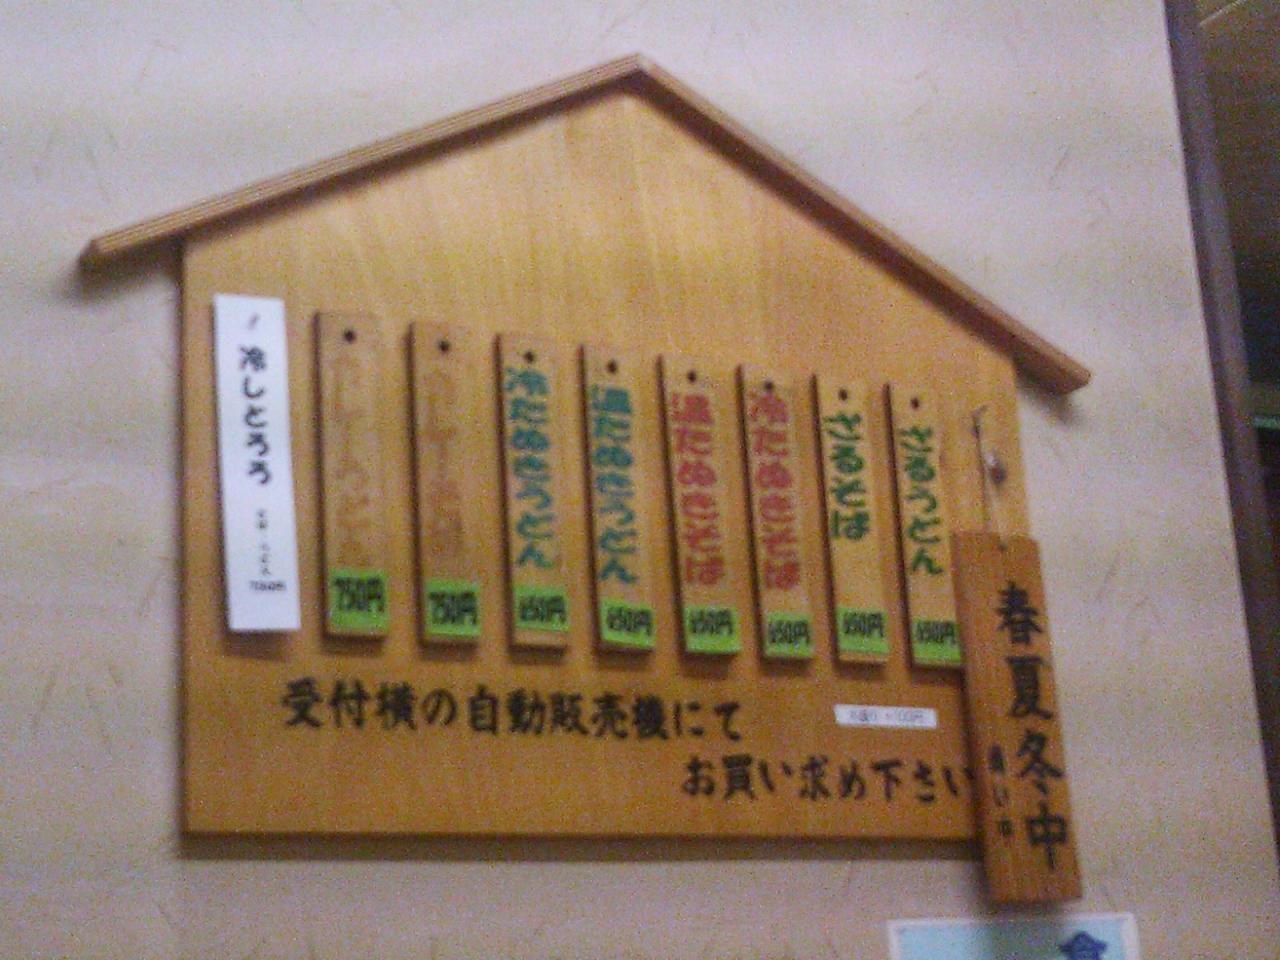 春夏冬中
商い中
ざるうどん
650円
ざるそば
650円
冷たぬきそば
650円
温たぬきそば
650円
温たぬきうどん
650円
冷たぬきうどん
650円
750円
750円
冷しとろろ
受付横の自動販売機にて
お買い求め下さい